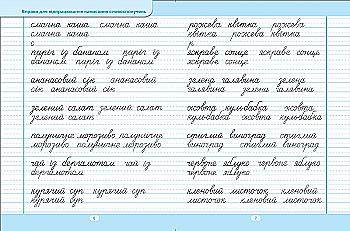 Вправи для відпрацювання написання словосполучень
смачна каша   смачна каша
смачна каша
пиріг із бананом   пиріг із
бананом   пиріг із бананом
ананасовий сік   ананасовий
сік   ананасовий сік
зелений салат   зелений салат
зелений салат
полуничне морозиво   полуничне
морозиво   полуничне морозиво
чай із бергамотом   чай із
бергамотом
курячий суп   курячий суп
курячий суп
6
рожева квітка   рожева
квітка   рожева квітка
яскраве сонце   яскраве сонце
яскраве сонце
зелена галявина   зелена
галявина   зелена галявина
жовта кульбабка   жовта
кульбабка   жовта кульбабка
стиглий виноград   стиглий
виноград   стиглий виноград
червоне яблуко   червоне яблуко
червоне яблуко
кленовий листочок   кленовий
листочок   кленовий листочок
7